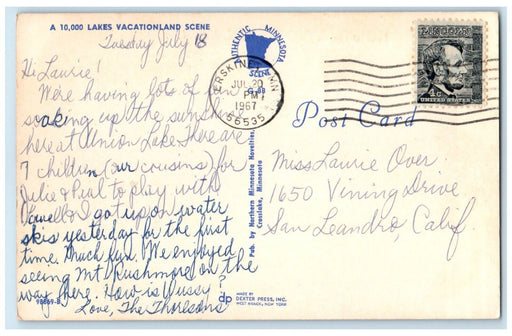 A 10,000 LAKES VACATIONLAND SCENE
Tuesday July 18
Hi Laurie!
We're having lots of fun
soaking up the sunshine
here at Union Lake. There are
7 children (our cousins) for
Julie & Paul to play with
I got up on water
skis yesterday for the first
time. Much fun. We enjoyed
seeing Mt Rushmore on the
way here. How is Wussy?
Love, The Thorlesons
98869-B
AUTHENTIC MINNESOTA
SCENE
ERSKINE MINN
JUL 20
PM
1967
56535
Pub. by Northern Minnesota Novelties,
Crosslake, Minnesota
LINCOLN
4c
UNITED STATES
Post Card
Miss Laurie Over
1650 Vining Drive
San Leandro, Calif.
dp
MADE BY
DEXTER PRESS, INC.
WEST NYACK, NEW YORK